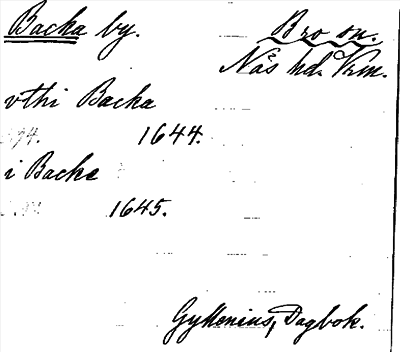 Backa by.
Bro sn.
Näs hd. Vrm.
vthi Backa
1644.
i Backa
1645.
Gyllenius, Dagbok.